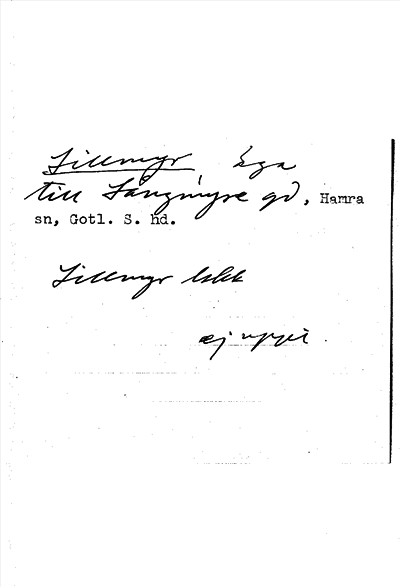 Lillmyr, äga
till Långmyre gd, Hamra
sn, Gotl. S. hd.
Lillmyr
ej uppt.